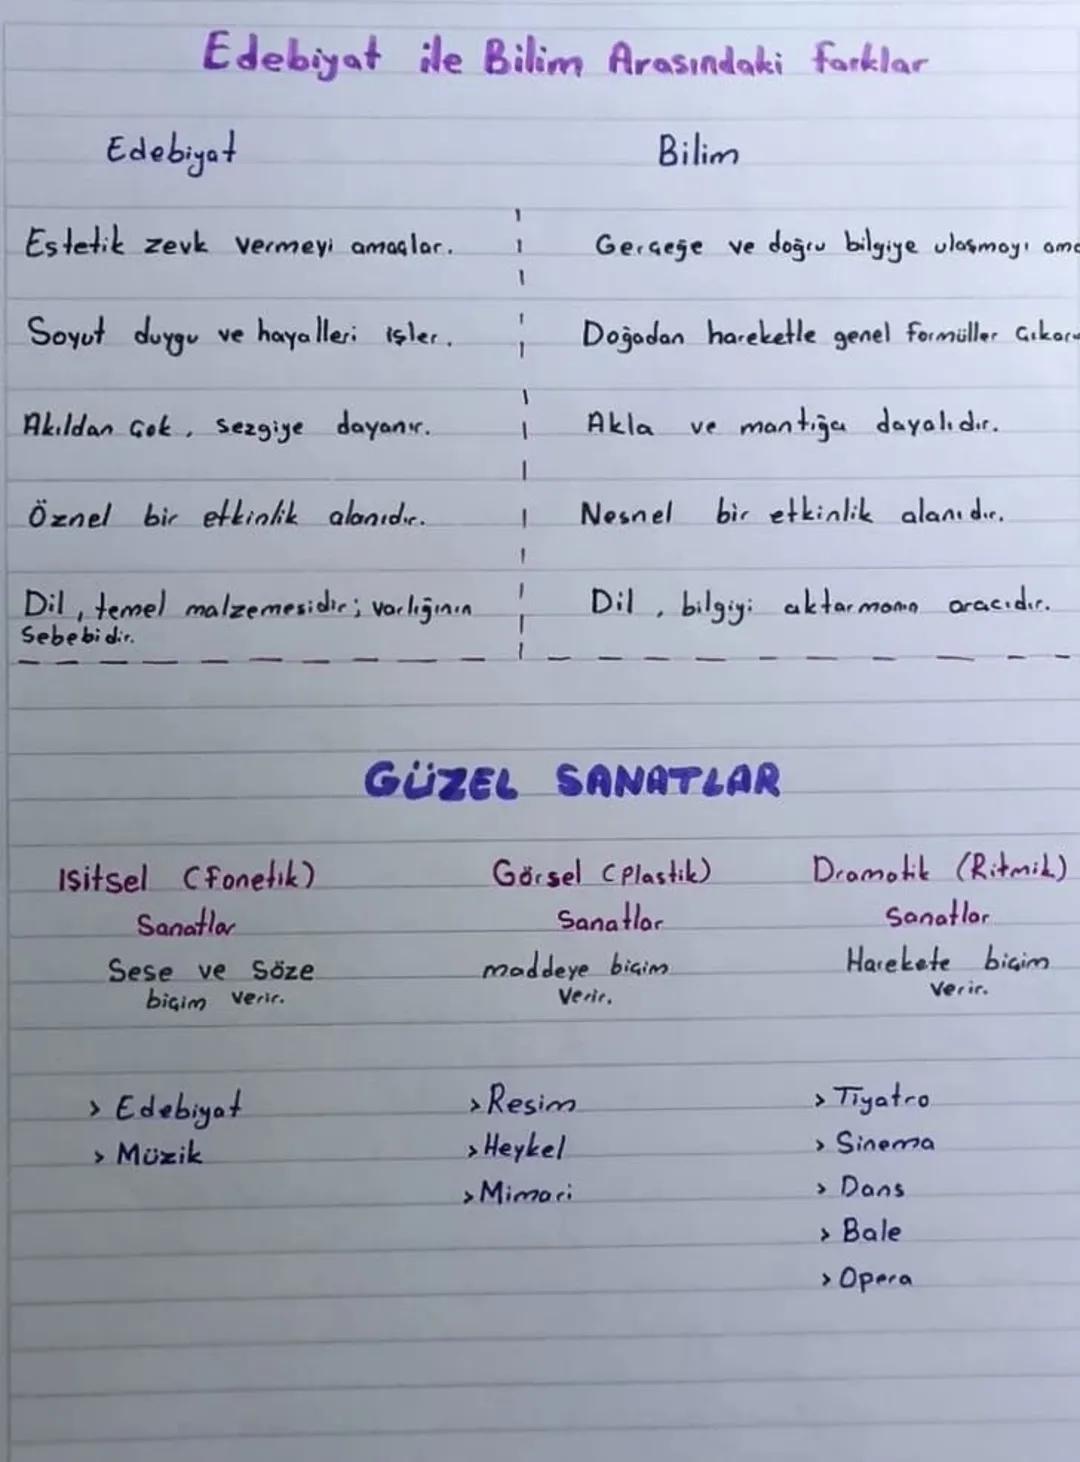 Edebiyat ile Bilim Arasındaki farklar
Edebiyat
Bilim
Estetik zevk vermeyi amaçlar.
Gerçeğe ve doğru bilgiye ulaşmayı
Soyut duygu ve hayalleri işler.
Doğadan hareketle genel formüller
Akıldan çok, sezgiye dayanır.
Akla ve mantığa dayalıdır.
Öznel bir etkinlik alanıdır.
Nesnel bir etkinlik alanıdır.
Dil, temel malzemesidir; varlığının
sebebidir.
Dil, bilgiyi aktarmanın aracıdır.
GÜZEL SANATLAR
Işitsel (Fonetik)
Sanatlar
Sese ve Söze
biçim verir.
> Edebiyat
> Müzik
Görsel (Plastik)
Sanatlar
maddeye biçim
verir.
> Resim
> Heykel
> Mimari
Dramatik (Ritmik)
Sanatlar
Harekete biçim
verir.
> Tiyatro
> Sinema
> Dans
> Bale
> Opera